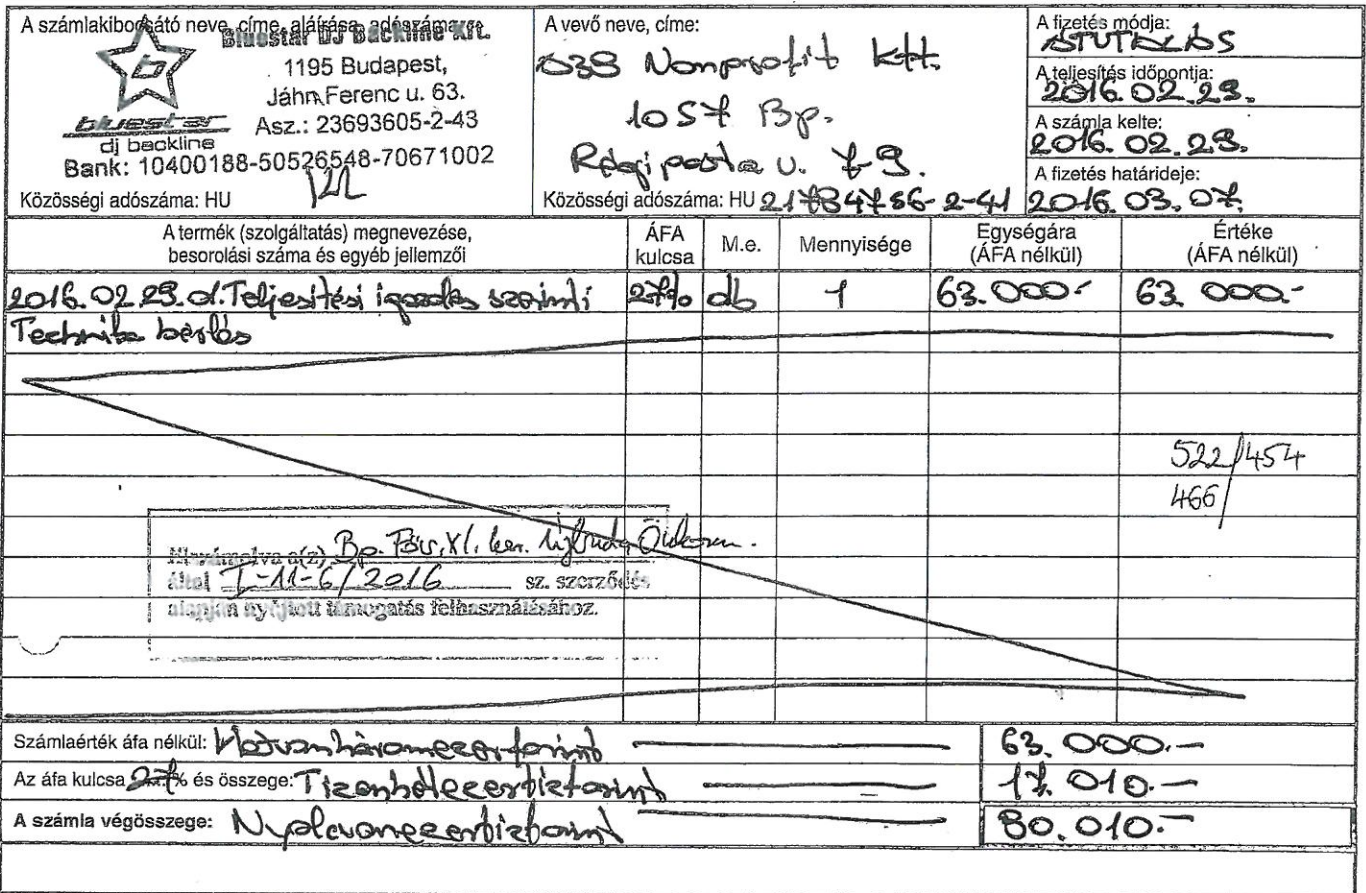 A számlakibocsátó neve, címe, aláírása, adószáma:
Bluestar DJ Backline Kft.
1195 Budapest,
Jáhn Ferenc u. 63.
Asz.: 23693605-2-43
b
bluestar
dj backline
Bank: 10400188-50526548-70671002
Közösségi adószáma: HU
A vevő neve, címe:
Nonprofit Kft.
1057 Bp.
Régiposta u. 7-9.
Közösségi adószáma: HU 21734756-2-41
A fizetés módja:
ÁTUTALÁS
A teljesítés időpontja:
2016.02.29.
A számla kelte:
2016.02.29.
A fizetés határideje:
2016.03.07.
A termék (szolgáltatás) megnevezése, besorolási száma és egyéb jellemzői
ÁFA kulcsa
M.e.
Mennyisége
Egységára (ÁFA nélkül)
Értéke (ÁFA nélkül)
2016.02.29.-i Teljesítési igazolás szerinti 27% db 1 63.000.- 63.000.-
Technika bérlés
522/454
466/
Elszámolva a(z) Bp. Főv. XI. ker. Újbuda Önkorm.
által I-11-6/2016 sz. szerződés
alapján nyújtott támogatás felhasználásához.
Számlaérték áfa nélkül: Hatvanháromezerforint 63.000.-
Az áfa kulcsa 27% és összege: Tizenhétezertízforint 17.010.-
A számla végösszege: Nyolcvanezertízforint 80.010.-